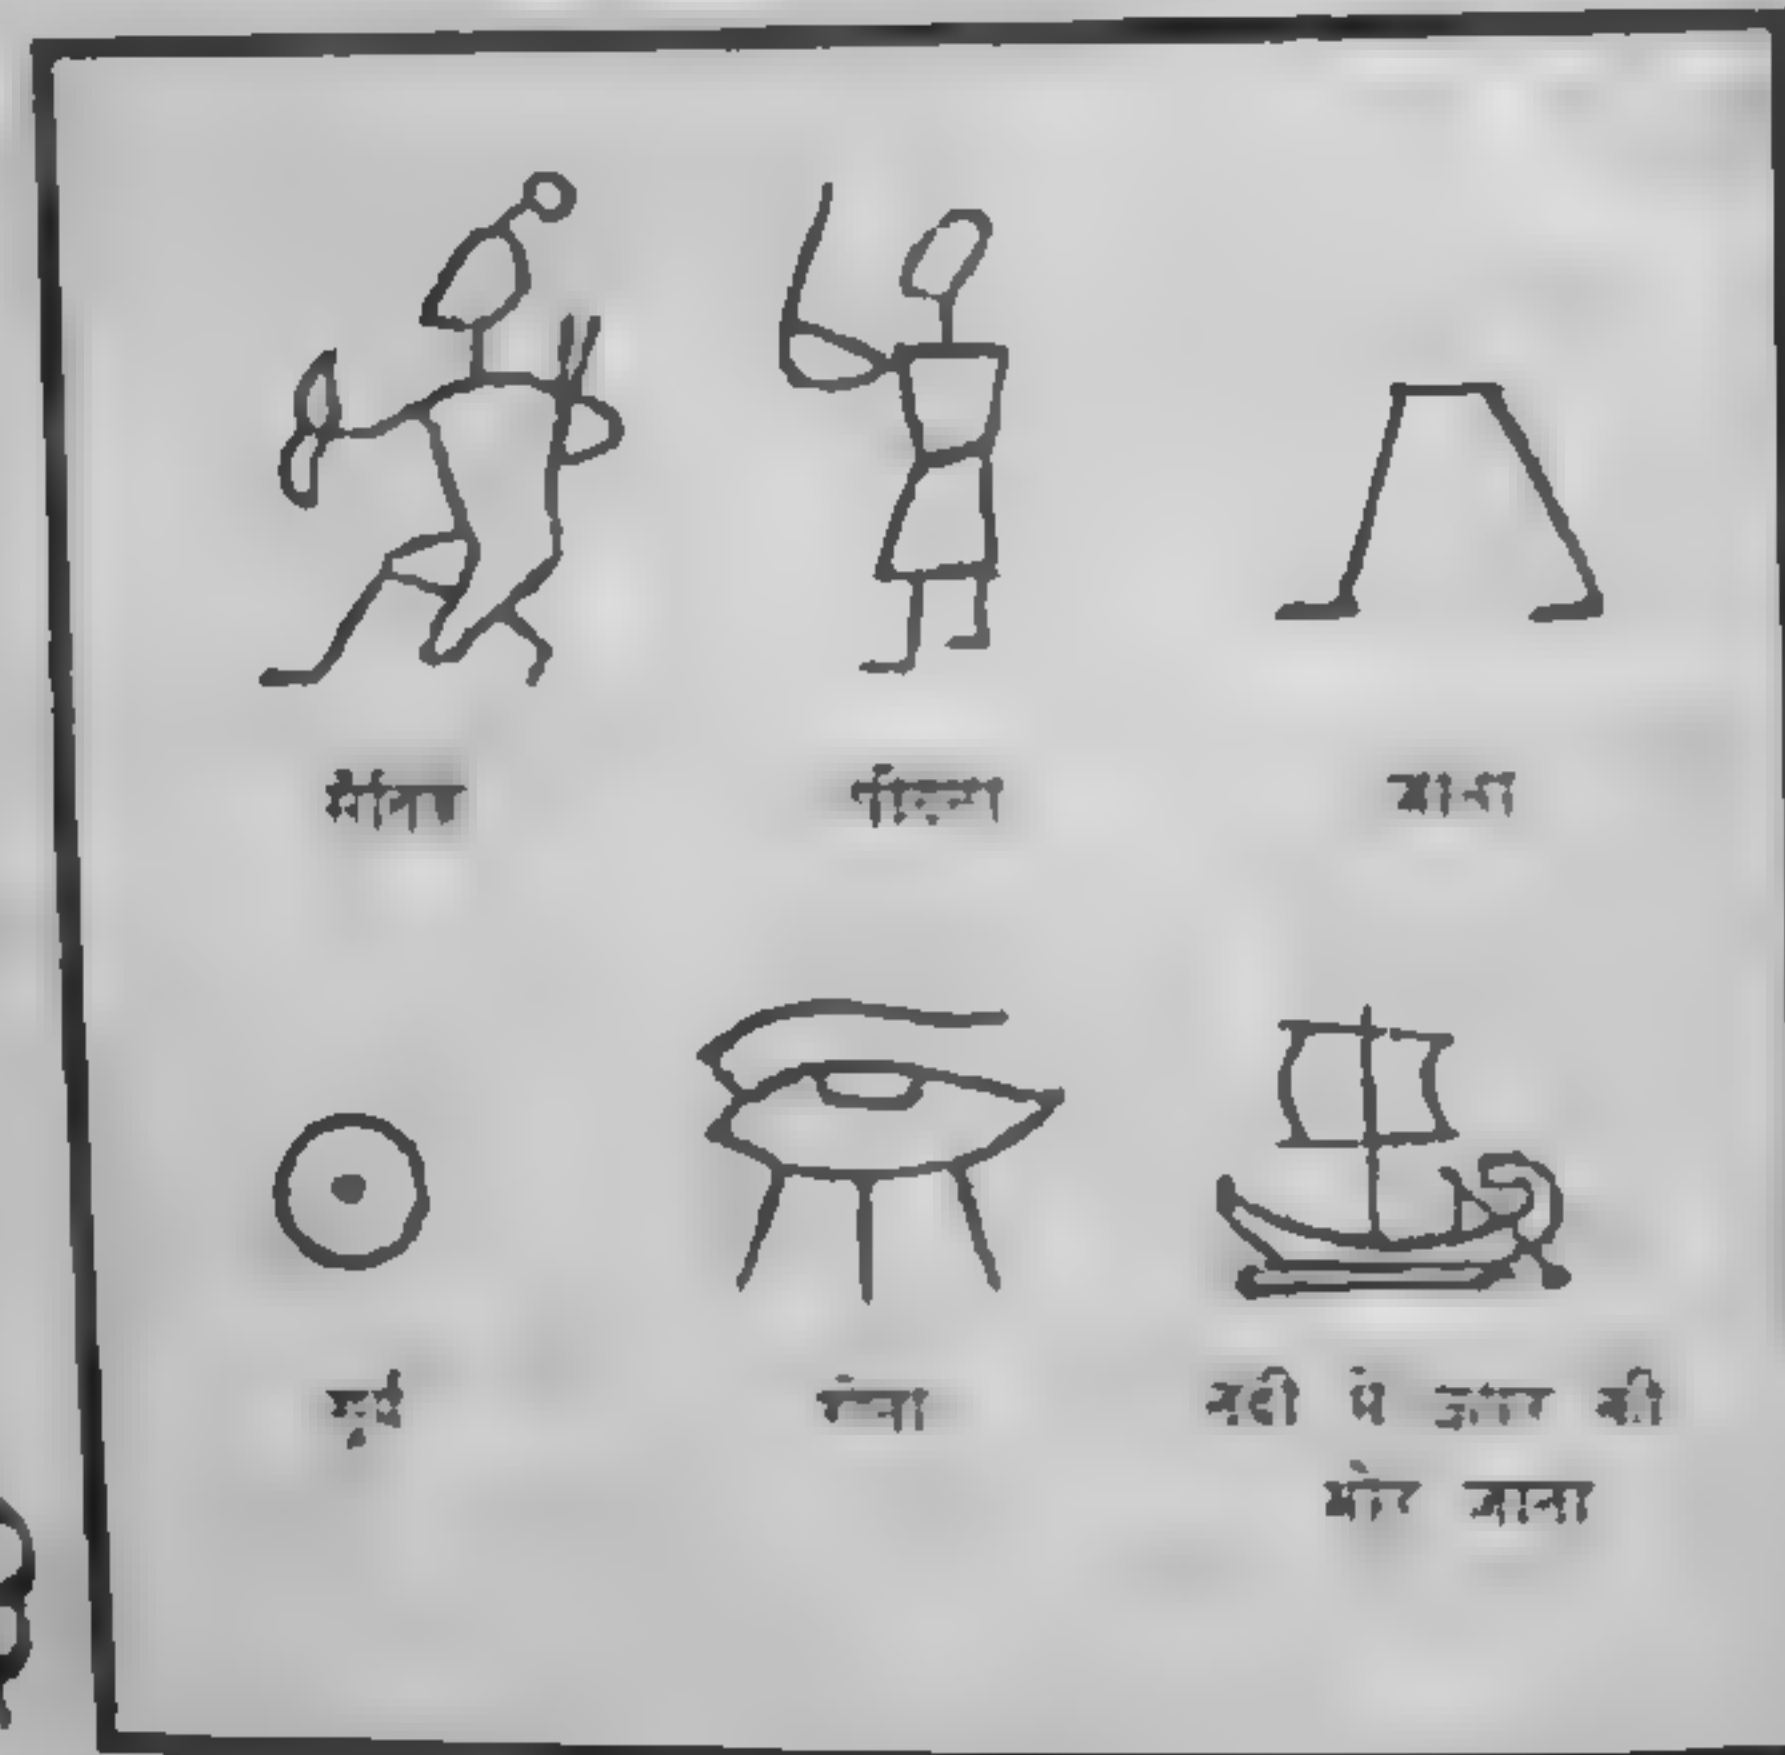 सैनिक
पीटना
जाना
सूर्य
रोना
नदी में ऊपर की
ओर जाना